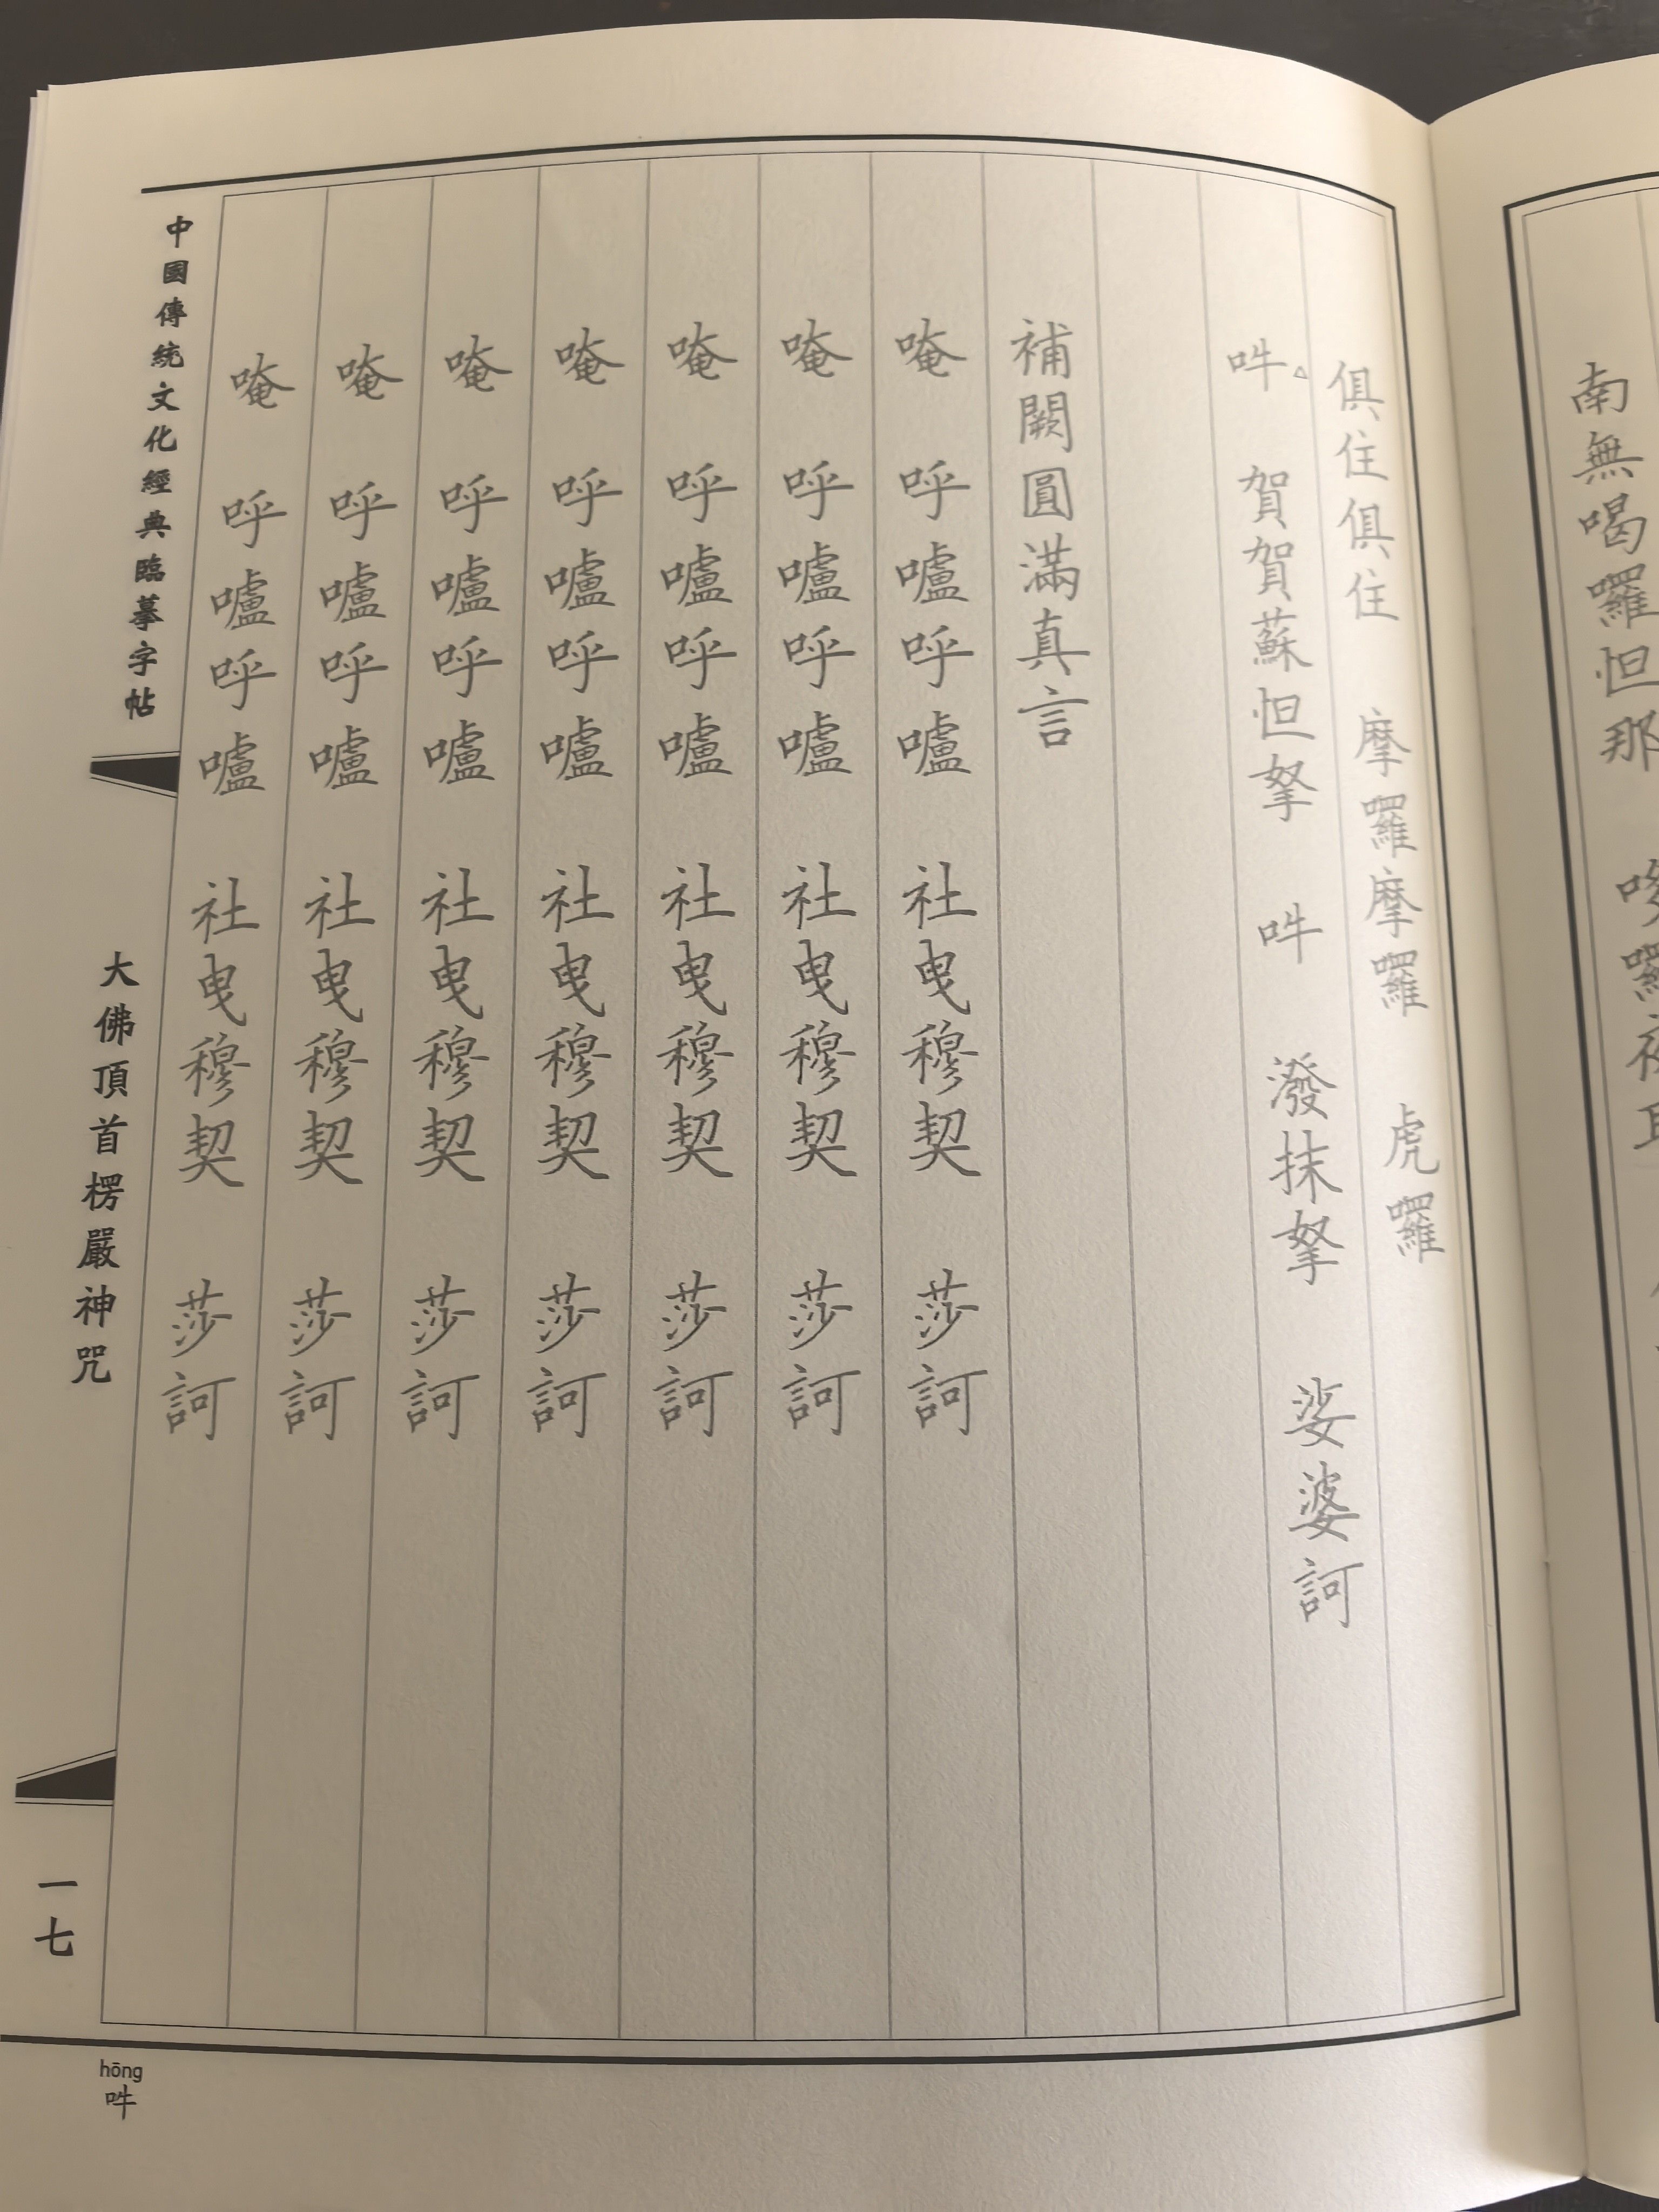 南無喝囉怛那
俱住俱住 摩囉摩囉 虎囉
吽 賀賀蘇怛拏 吽 潑抹拏 娑婆訶
補闕圓滿真言
唵 呼嚧呼嚧 社曳穆契 莎訶
唵 呼嚧呼嚧 社曳穆契 莎訶
唵 呼嚧呼嚧 社曳穆契 莎訶
唵 呼嚧呼嚧 社曳穆契 莎訶
唵 呼嚧呼嚧 社曳穆契 莎訶
唵 呼嚧呼嚧 社曳穆契 莎訶
唵 呼嚧呼嚧 社曳穆契 莎訶
中國傳統文化經典臨摹字帖
大佛頂首楞嚴神咒
一七
hōng
吽